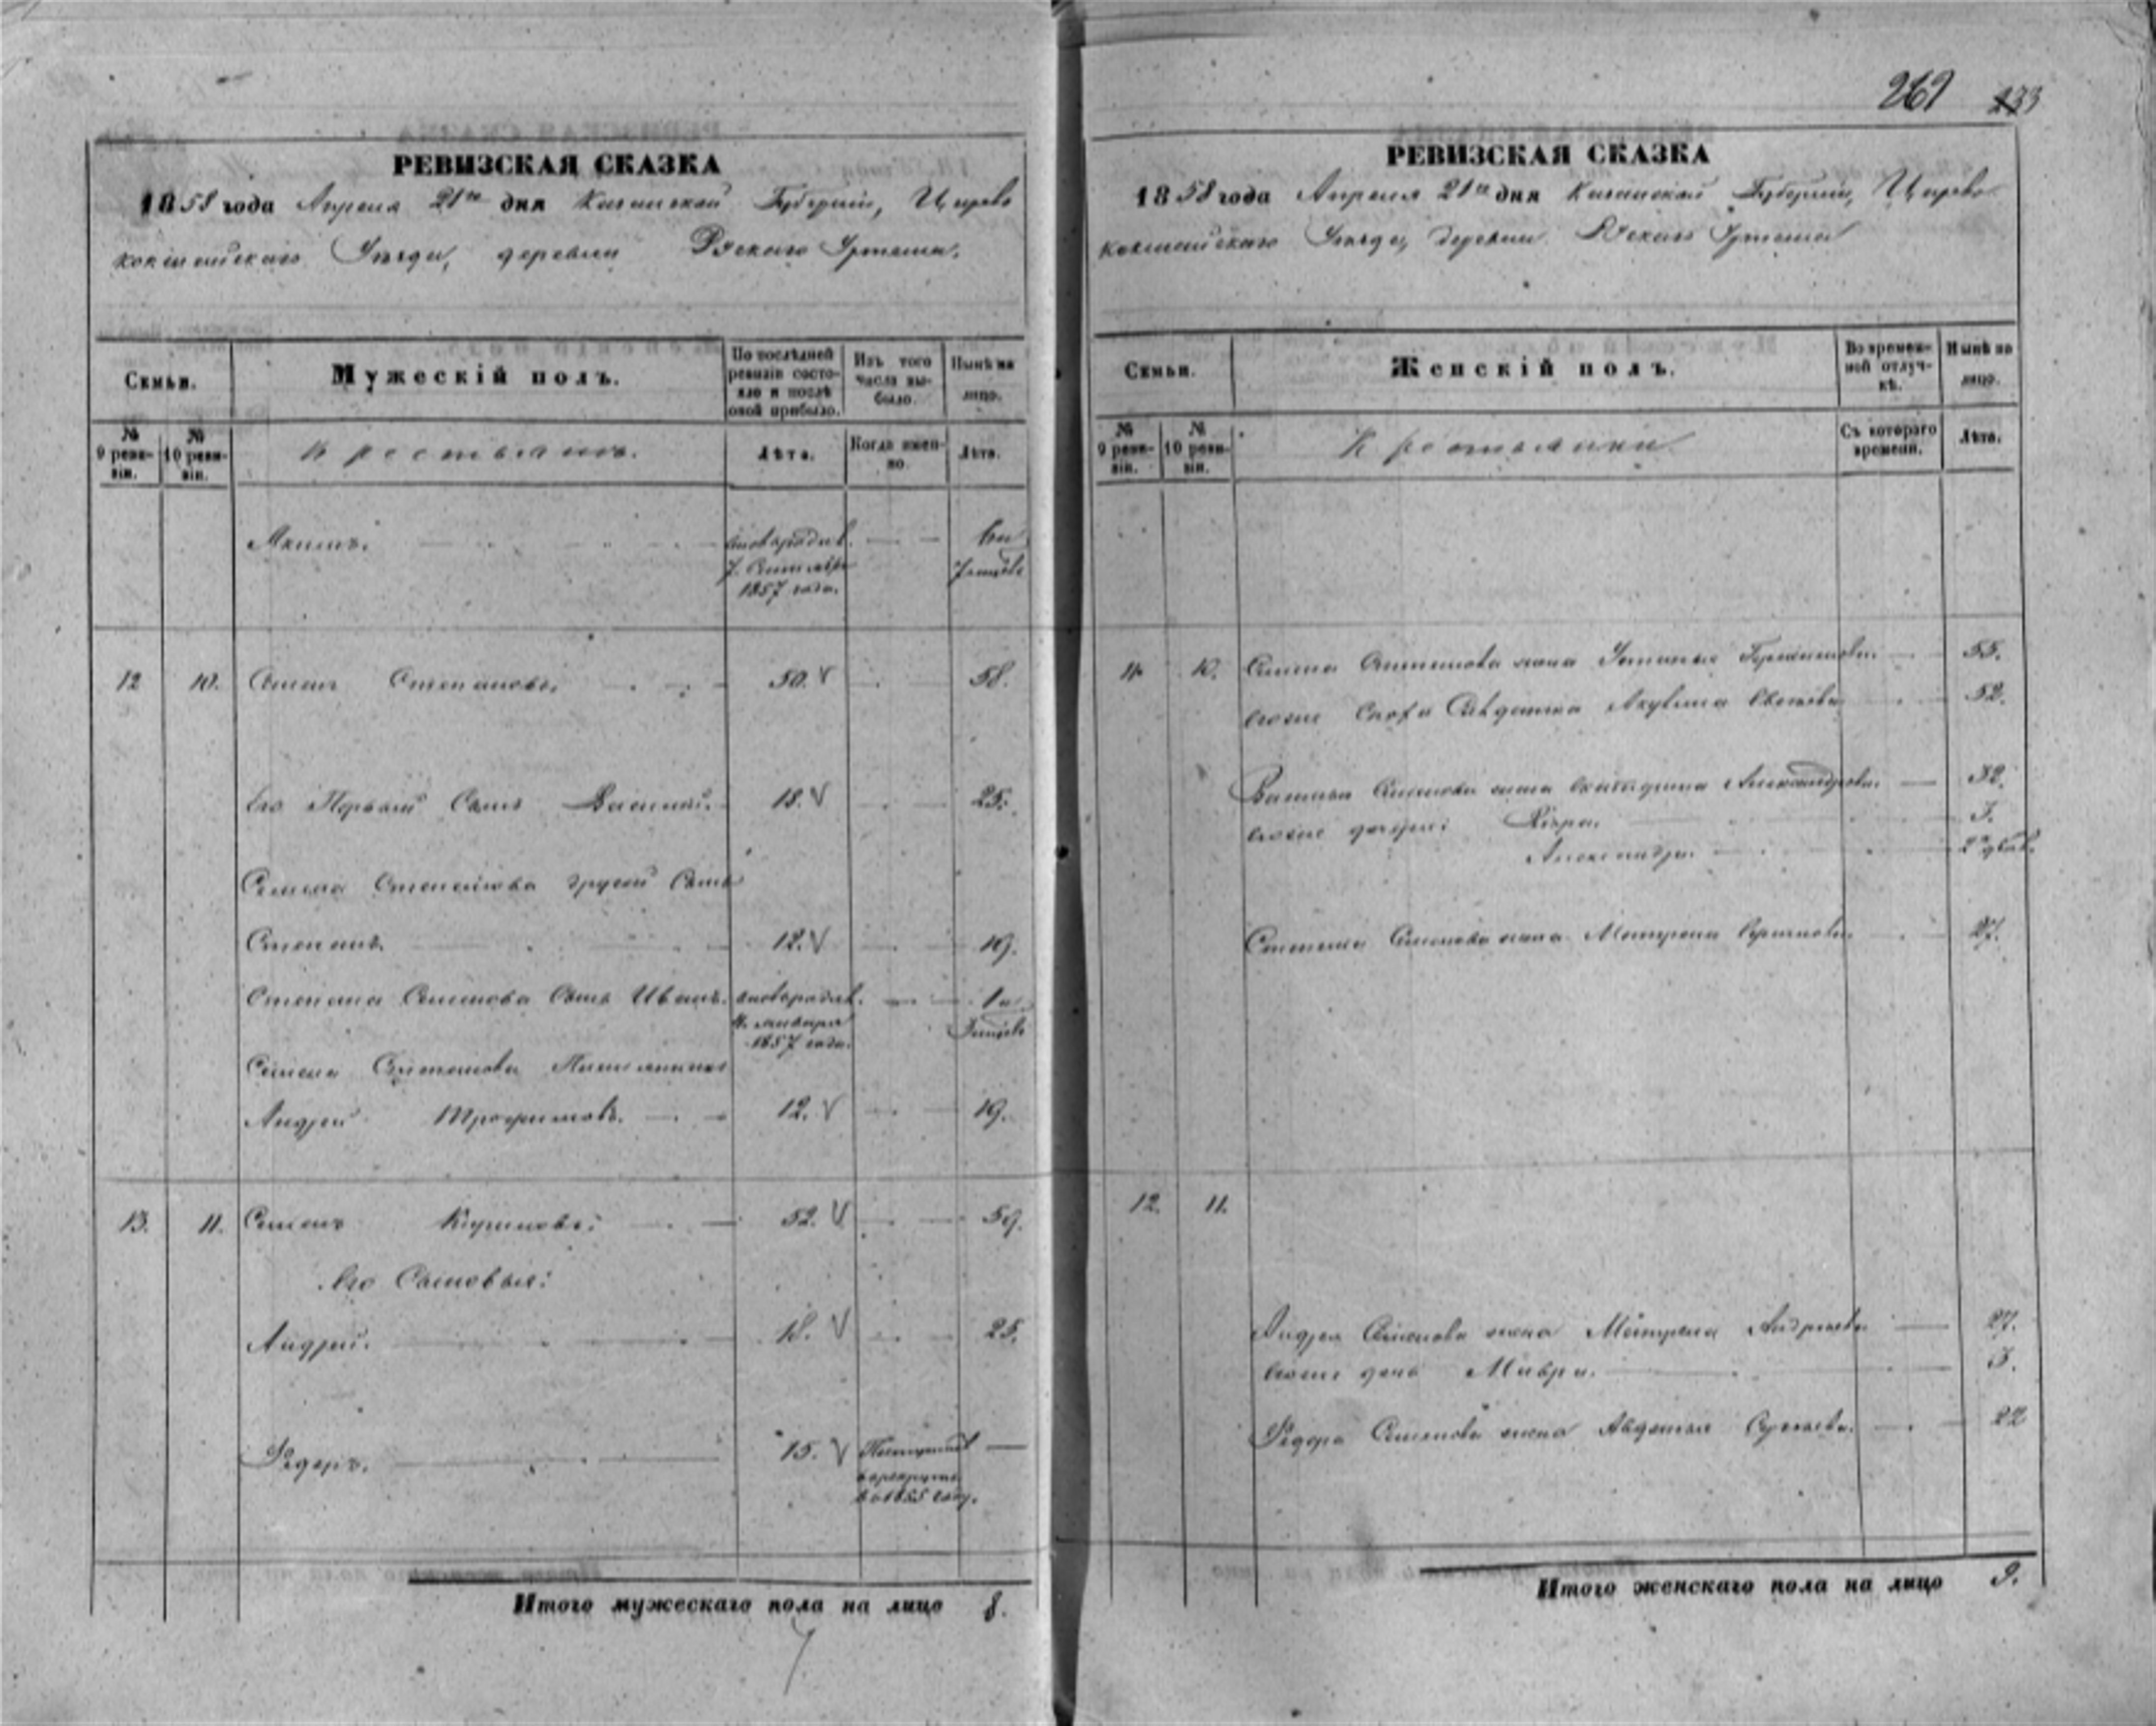 262 233
РЕВИЗСКАЯ СКАЗКА
1858 года Апреля 21го дня Казанской Губерніи, Царево
кокшайскаго Уѣзда, деревни Рускаго Уртема.
Семьи.
Мужескій полъ.
По послѣдней ревизіи состояло и послѣ оной прибыло.
Изъ того числа выбыло.
Нынѣ на лицо.
№ 9 ревизіи.
№ 10 ревизіи.
Крестьянъ.
Лѣта.
Когда именно.
Лѣта.
Акимъ. новорожд. 7 Сентября 1857 года.
12 10. Семенъ Степановъ. 50. 58.
Его Первый Сынъ Василий. 18. 25.
Семена Степанова другой Сынъ
Степанъ. 12. 19.
Степана Семенова Сынъ Иванъ. новорожд. января 1857 года.
Семена Степанова
Андрей Трофимовъ. 12. 19.
13. 11. Семенъ 52. 59.
Его Сыновья:
Андрей. 18. 25.
Федоръ. 15. Поступил в рекруты в 1855 году.
Итого мужескаго пола на лицо 8.
РЕВИЗСКАЯ СКАЗКА
1858 года Апреля 21го дня Казанской Губерніи, Царево
кокшайскаго Уѣзда, деревни Рускаго Уртема
Семьи.
Женскій полъ.
Во временной отлучкѣ.
Нынѣ на лицо.
№ 9 ревизіи.
№ 10 ревизіи.
Крестьянки
Съ котораго времени.
Лѣта.
10. Семена Степанова жена 55.
Акулина 52.
Василья Семенова жена Александрова 32.
3.
Александра.
Степана Семенова жена Матрена 27.
12. 11.
Андрея Семенова жена Матрена Андреева 27.
дочь Мавра. 3.
Федора Семенова жена Авдотья Сергеева. 22
Итого женскаго пола на лицо 9.